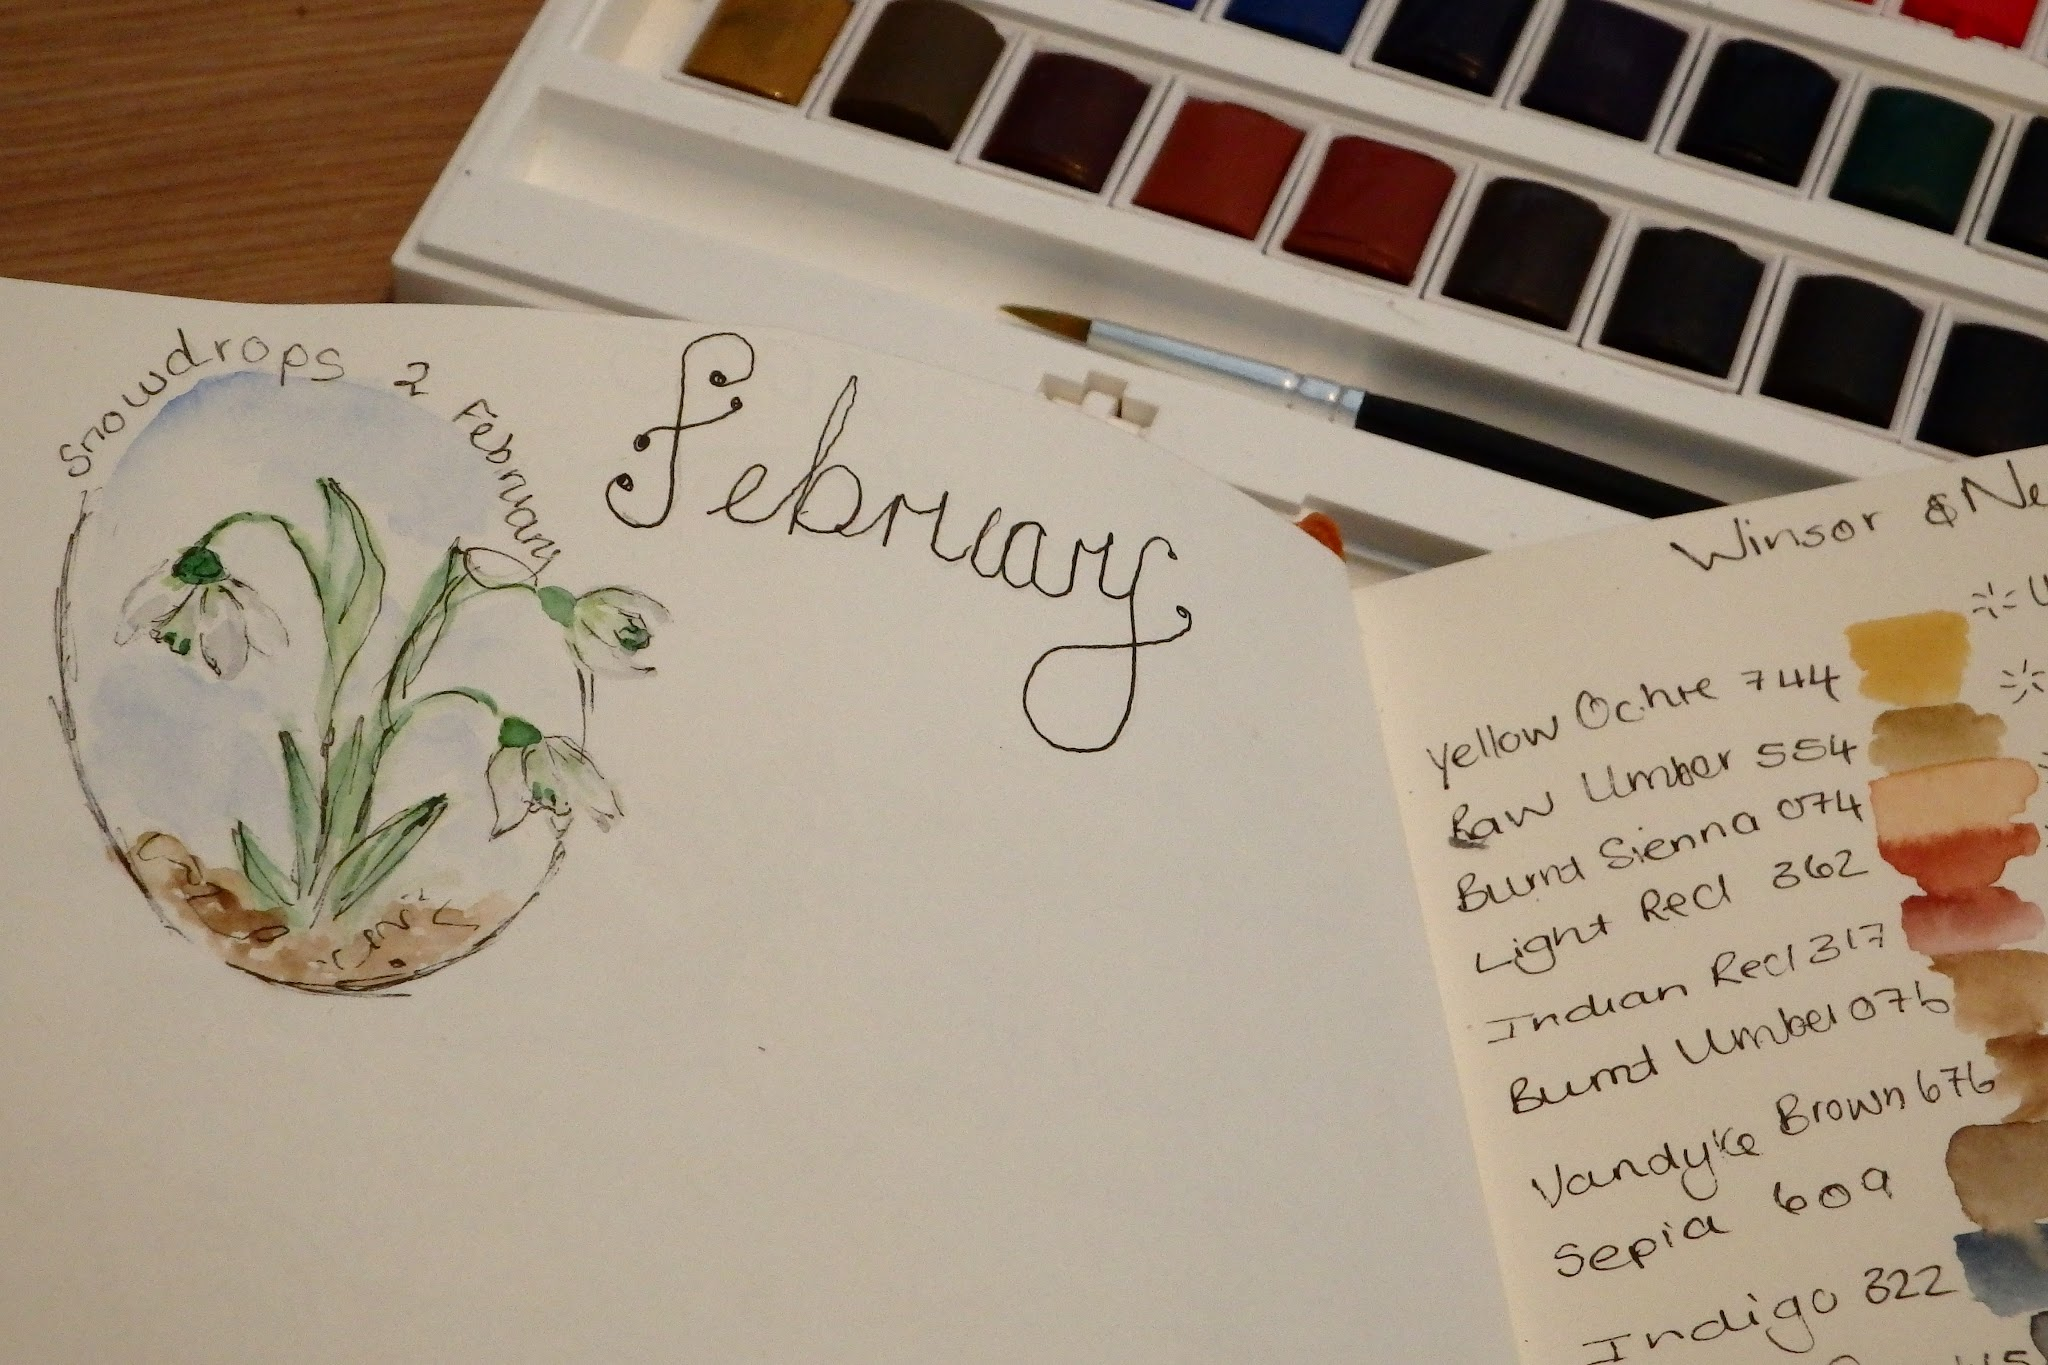 Snowdrops 2 February
February
Winsor & Ne
Yellow Ochre 744
Raw Umber 554
Burnt Sienna 074
Light Red 362
Indian Red 317
Burnt Umber 076
Vandyke Brown 676
Sepia 609
Indigo 322